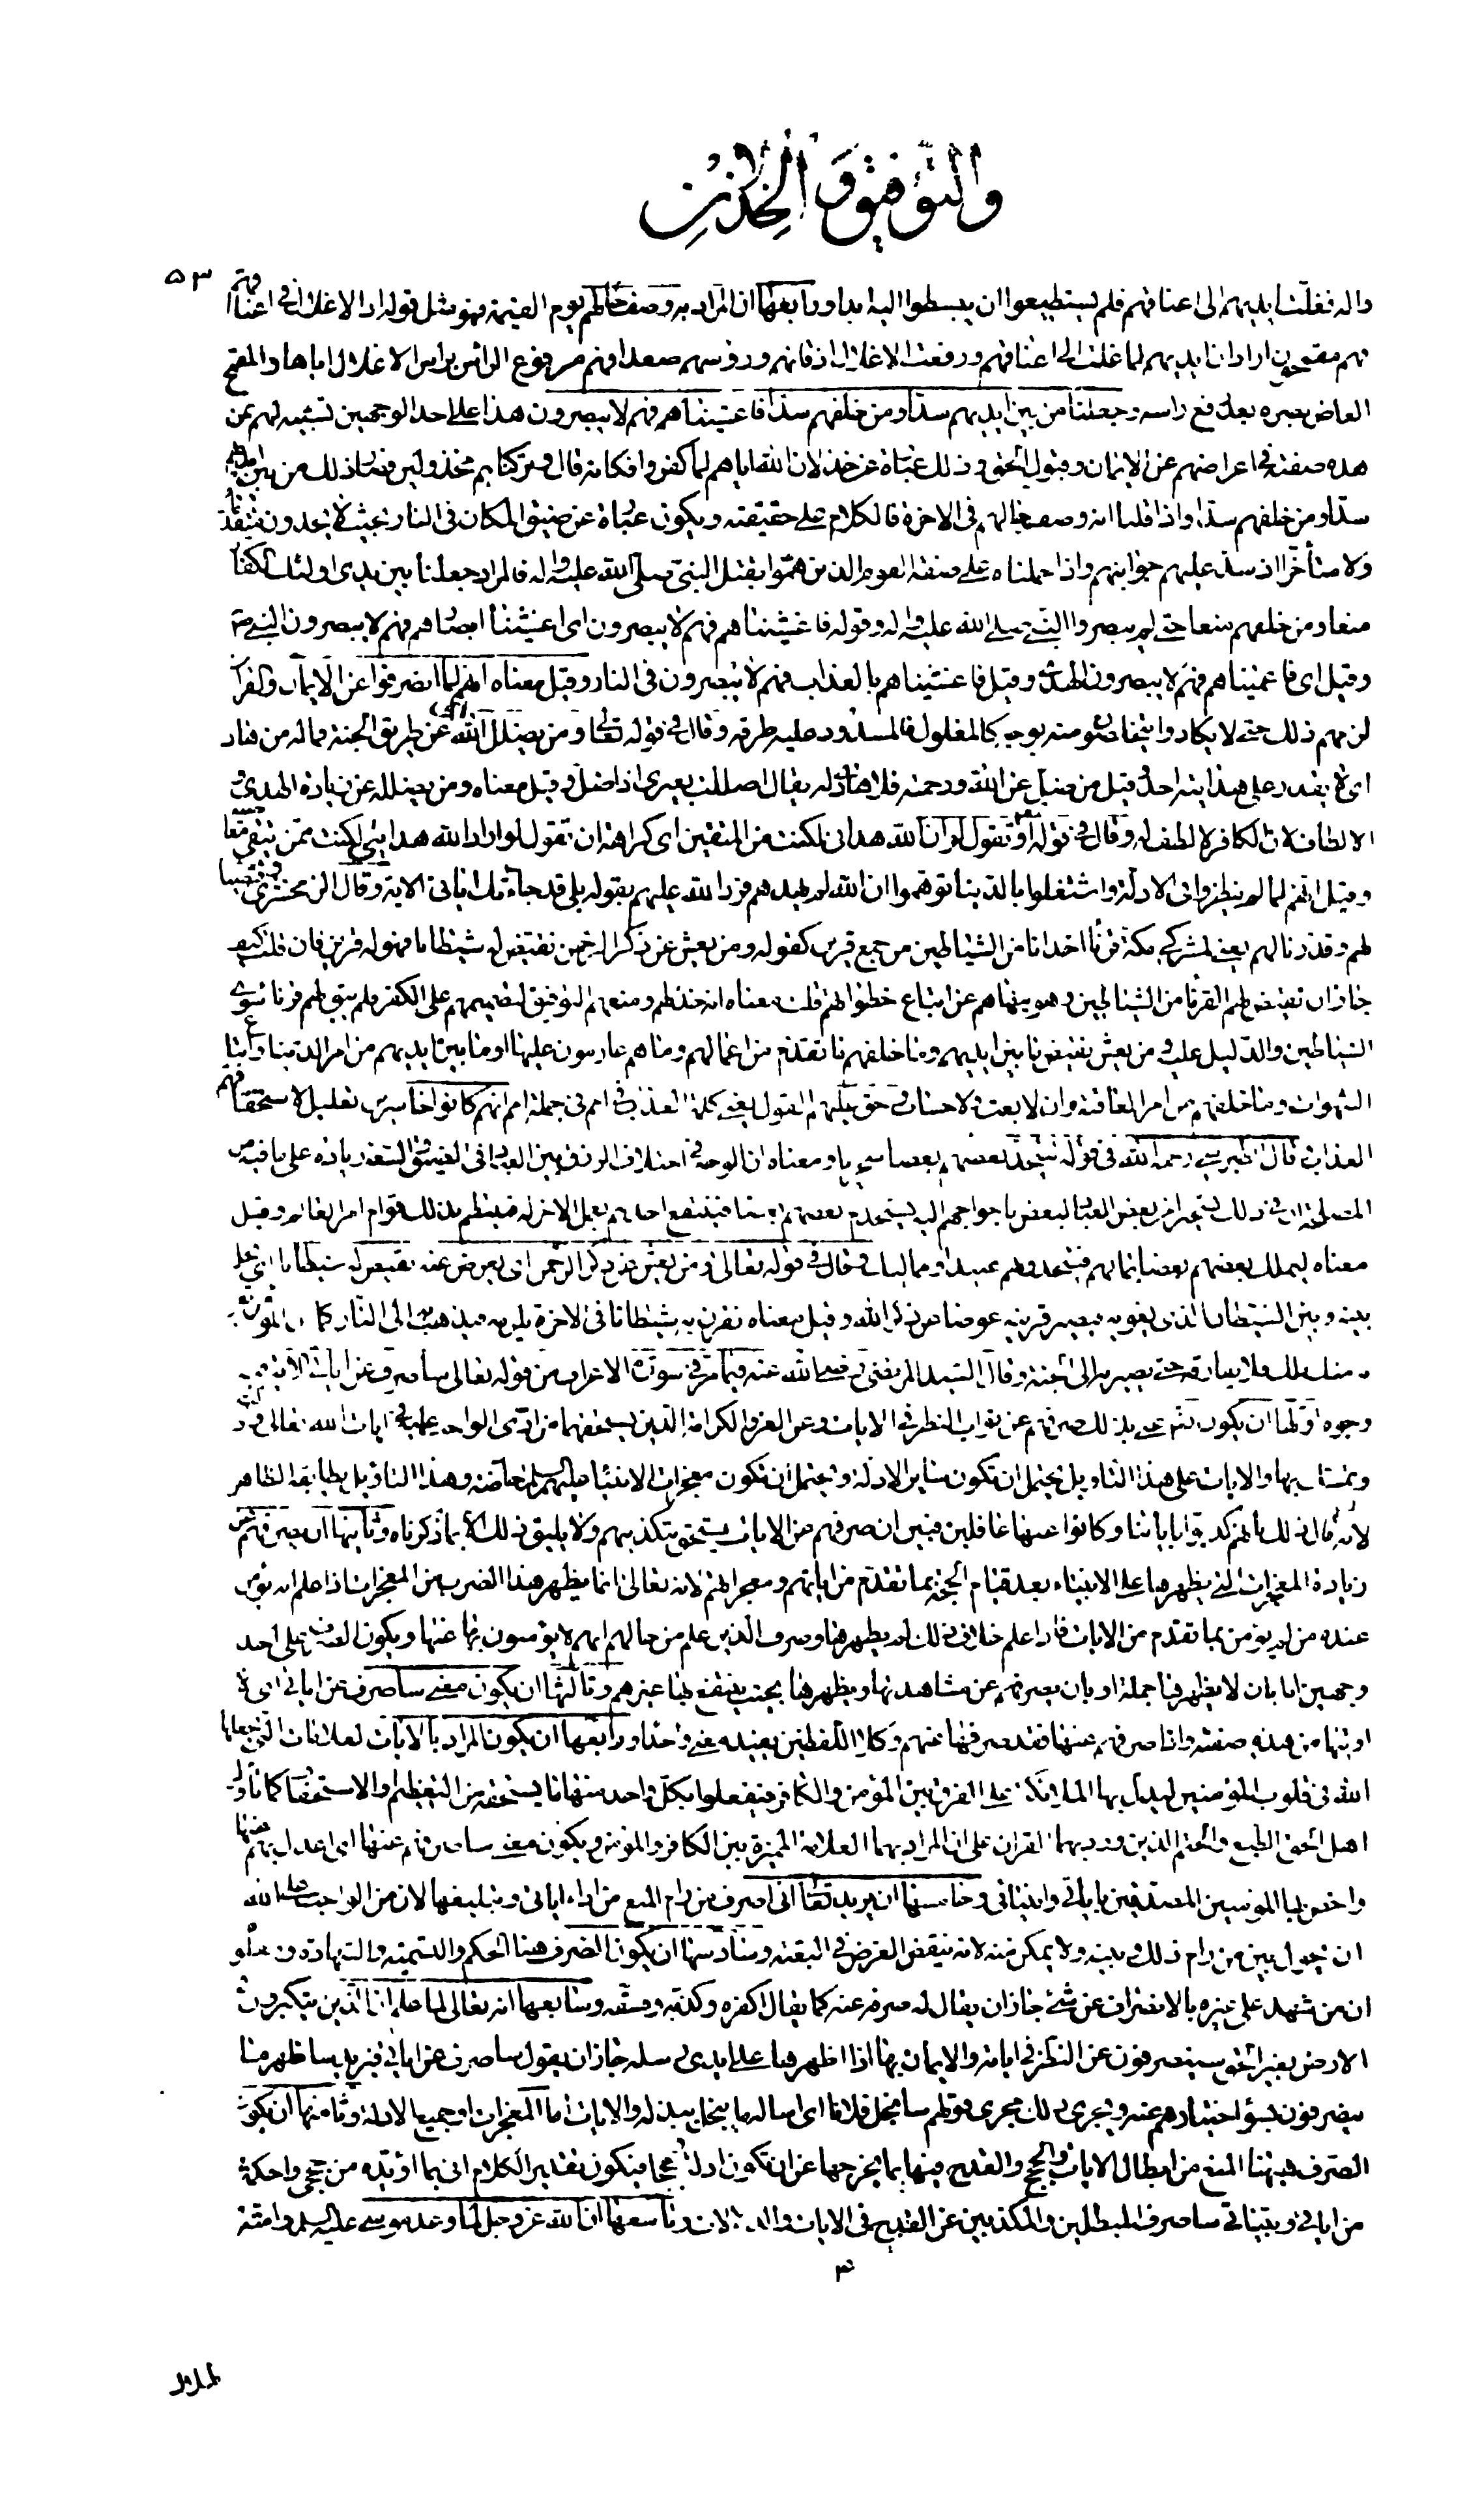 والتوفيق الخذلان
٥٣
واله فغلت ايديهم الى اعناقهم فلم يستطيعوا ان يبسطوا اليه يدا ورابعها ان المراد به وصف حالهم يوم القيمة فهو مثل قوله اذ الاغلال في اعناقهم
فهم مقمحون اراد ان ايديهم لما غلت الى اعناقهم ورفعت الاغلال اذقانهم ورؤسهم صعدا فهم مرفوع الراس براس الاغلال اياها والمقمح
الغاض بصره بعد رفع راسه وجعلنا من بين ايديهم سدا ومن خلفهم سدا فاغشيناهم فهم لا يبصرون هذا على احد الوجهين تشبيه لهم بمن
هذه صفته في اعراضهم عن الايمان وقبول الحق وذلك عبارة عن خذلان الله اياهم لما كفروا فكانه قال وتركناهم مخذولين فصار ذلك من بين ايديهم
سدا ومن خلفهم سدا واذا قلنا انه وصف حالهم في الاخرة فالكلام على حقيقته ويكون عبارة عن ضيق المكان في النار بحيث لا يجدون متقدما
ولا متأخرا اذ سد عليهم جوانبهم واذا حملناه على صفة القوم الذين هموا بقتل النبي صلى الله عليه واله فالمراد جعلنا بين يدى اولئك الكفار
منعا ومن خلفهم منعا حتى لم يبصروا النبي صلى الله عليه واله وقوله فاغشيناهم فهم لا يبصرون اى اغشينا ابصارهم فهم لا يبصرون النبي ص
وقيل اى فاعميناهم فهم لا يبصرون الهدى وقيل فاغشيناهم بالعذاب فهم لا يبصرون في النار وقيل معناه انهم لما انصرفوا عن الايمان والقران
لزمهم ذلك حتى لا يكادوا يتخلصون منه بوجه كالمغلول والمسدود عليه طرقه وقال في قوله تعالى ومن يضلل الله اى عن طريق الجنة فماله من هاد
اى لا يقدر على هدايته احد وقيل من ضل عن الله ورحمته فلا هادى له يقال اضللت بعيرى اذا ضل وقيل معناه ومن يضلله عن زيادة الهدى و
الالطاف لان الكافر لا لطف له وقال في قوله او تقول لو ان الله هدانى لكنت من المتقين اى كراهة ان تقول لو اراد الله هدايتى لكنت ممن يتقى معاصيه
وقيل انهم لما لم ينظروا في الادلة واشتغلوا بالدنيا توهموا ان الله لم يهدهم فرد الله عليهم بقوله بلى قد جاءتك اياتى الاية وقال الزمخشرى وقيضنا
لهم وقدرنا لهم يعنى لمشركى مكة قرنا اخدانا من الشياطين من جمع قرين كقوله ومن يعش عن ذكر الرحمن نقيض له شيطانا فهو له قرين فان قلت كيف
جاز ان يقيض لهم القرنا من الشياطين وهو ينهاهم عن اتباع خطواتهم قلت معناه انه خذلهم ومنعهم التوفيق لتصميمهم على الكفر فلم يبق لهم قرنا سوى
الشياطين والدليل عليه ومن يعش نقيض ما بين ايديهم وما خلفهم ما تقدم من اعمالهم وما هم عازمون عليها او ما بين ايديهم من امر الدنيا واتباع
الشهوات وما خلفهم من امر العاقبة وان لا بعث ولا حساب وحق عليهم القول يعنى كلمة العذاب في امم في جملة امم انهم كانوا خاسرين تعليل لاستحقاقهم
العذاب قال الطبرسي رحمه الله في قوله ليتخذ بعضهم بعضا سخريا ومعناه ان الوجه في اختلاف الرزق بين العباد في الضيق والسعة زيادة على ما فيه من
المصلحة ان في ذلك تسخيرا من بعض العباد لبعض باحواجهم اليه يستخدم بعضهم بعضا فينتفع احدهم بعمل الاخر له فينتظم بذلك قوام امر العالم وقيل
معناه ليملك بعضهم بعضا بمالهم فيتخذونهم عبيدا ومماليك وقال في قوله تعالى ومن يعش عن ذكر الرحمن اى يعرض عنه نقيض له شيطانا اى نخلي
بينه وبين الشيطان الذى يغويه فيصير قرينه عوضا عن ذكر الله وقيل معناه نقرن به شيطانا في الاخرة يلزمه فيذهب به الى النار كما ان المؤمن
ملك فلا يفارقه حتى يصير به الى الجنة وقال السيد المرتضى رضى الله عنه فيما مر في سورة الاعراف من قوله تعالى ساصرف عن اياتى الاية فيه
وجوه اولها ان يكون تعالى عنى بذلك صرفهم عن ثواب النظر في الايات وعن العز والكرامة الذين يستحقهما من ادى الواجب عليه في ايات الله تعالى
وتمسك بها والايات على هذا التاويل يحتمل ان تكون ساير الادلة ويحتمل ان تكون معجزات الانبياء عليهم السلم خاصة وهذا التاويل يطابقه الظاهر
لانه قال ذلك بانهم كذبوا باياتنا وكانوا عنها غافلين فبين ان صرفهم عن الايات يستحق بتكذيبهم ولا يليق ذلك الا بما ذكرناه وثانيها ان يصرفهم عن
زيادة المعجزات التى يظهرها على الانبياء بعد قيام الحجة بما تقدم من اياتهم ومعجزاتهم لانه تعالى انما يظهر هذا الضرب من المعجزات اذا علم انه يؤمن
عنده من لم يؤمن بما تقدم من الايات فاذا علم خلاف ذلك لم يظهرها وصرف الذين علم من حالهم انهم لا يؤمنون بها عنها ويكون الصرف على احد
وجهين اما بان لا يظهرها جملة او بان يصرفهم عن مشاهدتها ويظهرها بحيث ينتفع بها غيرهم وثالثها ان يكون معنى ساصرف عن اياتى اى لا
اوتيها من هذه صفته واذا صرفهم عنها فقد صرفها عنهم وكلا اللفظين يفيد معنى واحدا ورابعها ان يكون المراد بالايات العلامات التى يجعلها
الله في قلوب المؤمنين ليدل بها الملائكة على الفرق بين المؤمن والكافر فيفعلوا بكل واحد منهما ما يستحقه من التعظيم والاستخفاف كما تاول
اهل الحق الطبع والختم الذين ورد بهما القران على ان المراد بهما العلامة المميزة بين الكافر والمؤمن ويكون معنى ساصرف عنها اى اعدل بهم عنها
واخص بها المؤمنين المصدقين باياتى وانبيائى وخامسها ان يريد تعالى انى اصرف من رام المنع من اداء اياتى وتبليغها لان من الواجب على الله
ان يحول بين من رام ذلك وبينه ولا يمكن منه لانه ينقض الغرض في البعثة وسادسها ان يكون الصرف هنا الحكم والتسمية والشهادة
ان من شهد على غيره بالانصراف عن شئ جاز ان يقال له صرفه عنه كما يقال اكفره وكذبه وفسقه وسابعها انه تعالى لما علم ان الذين يتكبرون في
الارض بغير الحق سينصرفون عن النظر في اياته والايمان بها اذا اظهرها على ايدى رسله جاز ان يقول ساصرف عن اياتى فيريد ساظهر ما
ينصرفون بسوء اختيارهم عنه ويجرى ذلك مجرى قولهم سابخل فلانا اى اساله ما يبخل ببذله والايات اما المعجزات او جميع الادلة وثامنها ان يكون
الصرف هيهنا المنع من ابطال الايات والحجج والقدح فيها بما يخرجها عن ان تكون ادلة وحججا فيكون تقدير الكلام انى بما اؤيده من حججى واحكمه
من اياتى وبيناتى ساصرف المبطلين والمكذبين عن القدح في الايات والدلالات وتاسعها ان الله عز وجل لما وعد موسى عليه السلم وامته